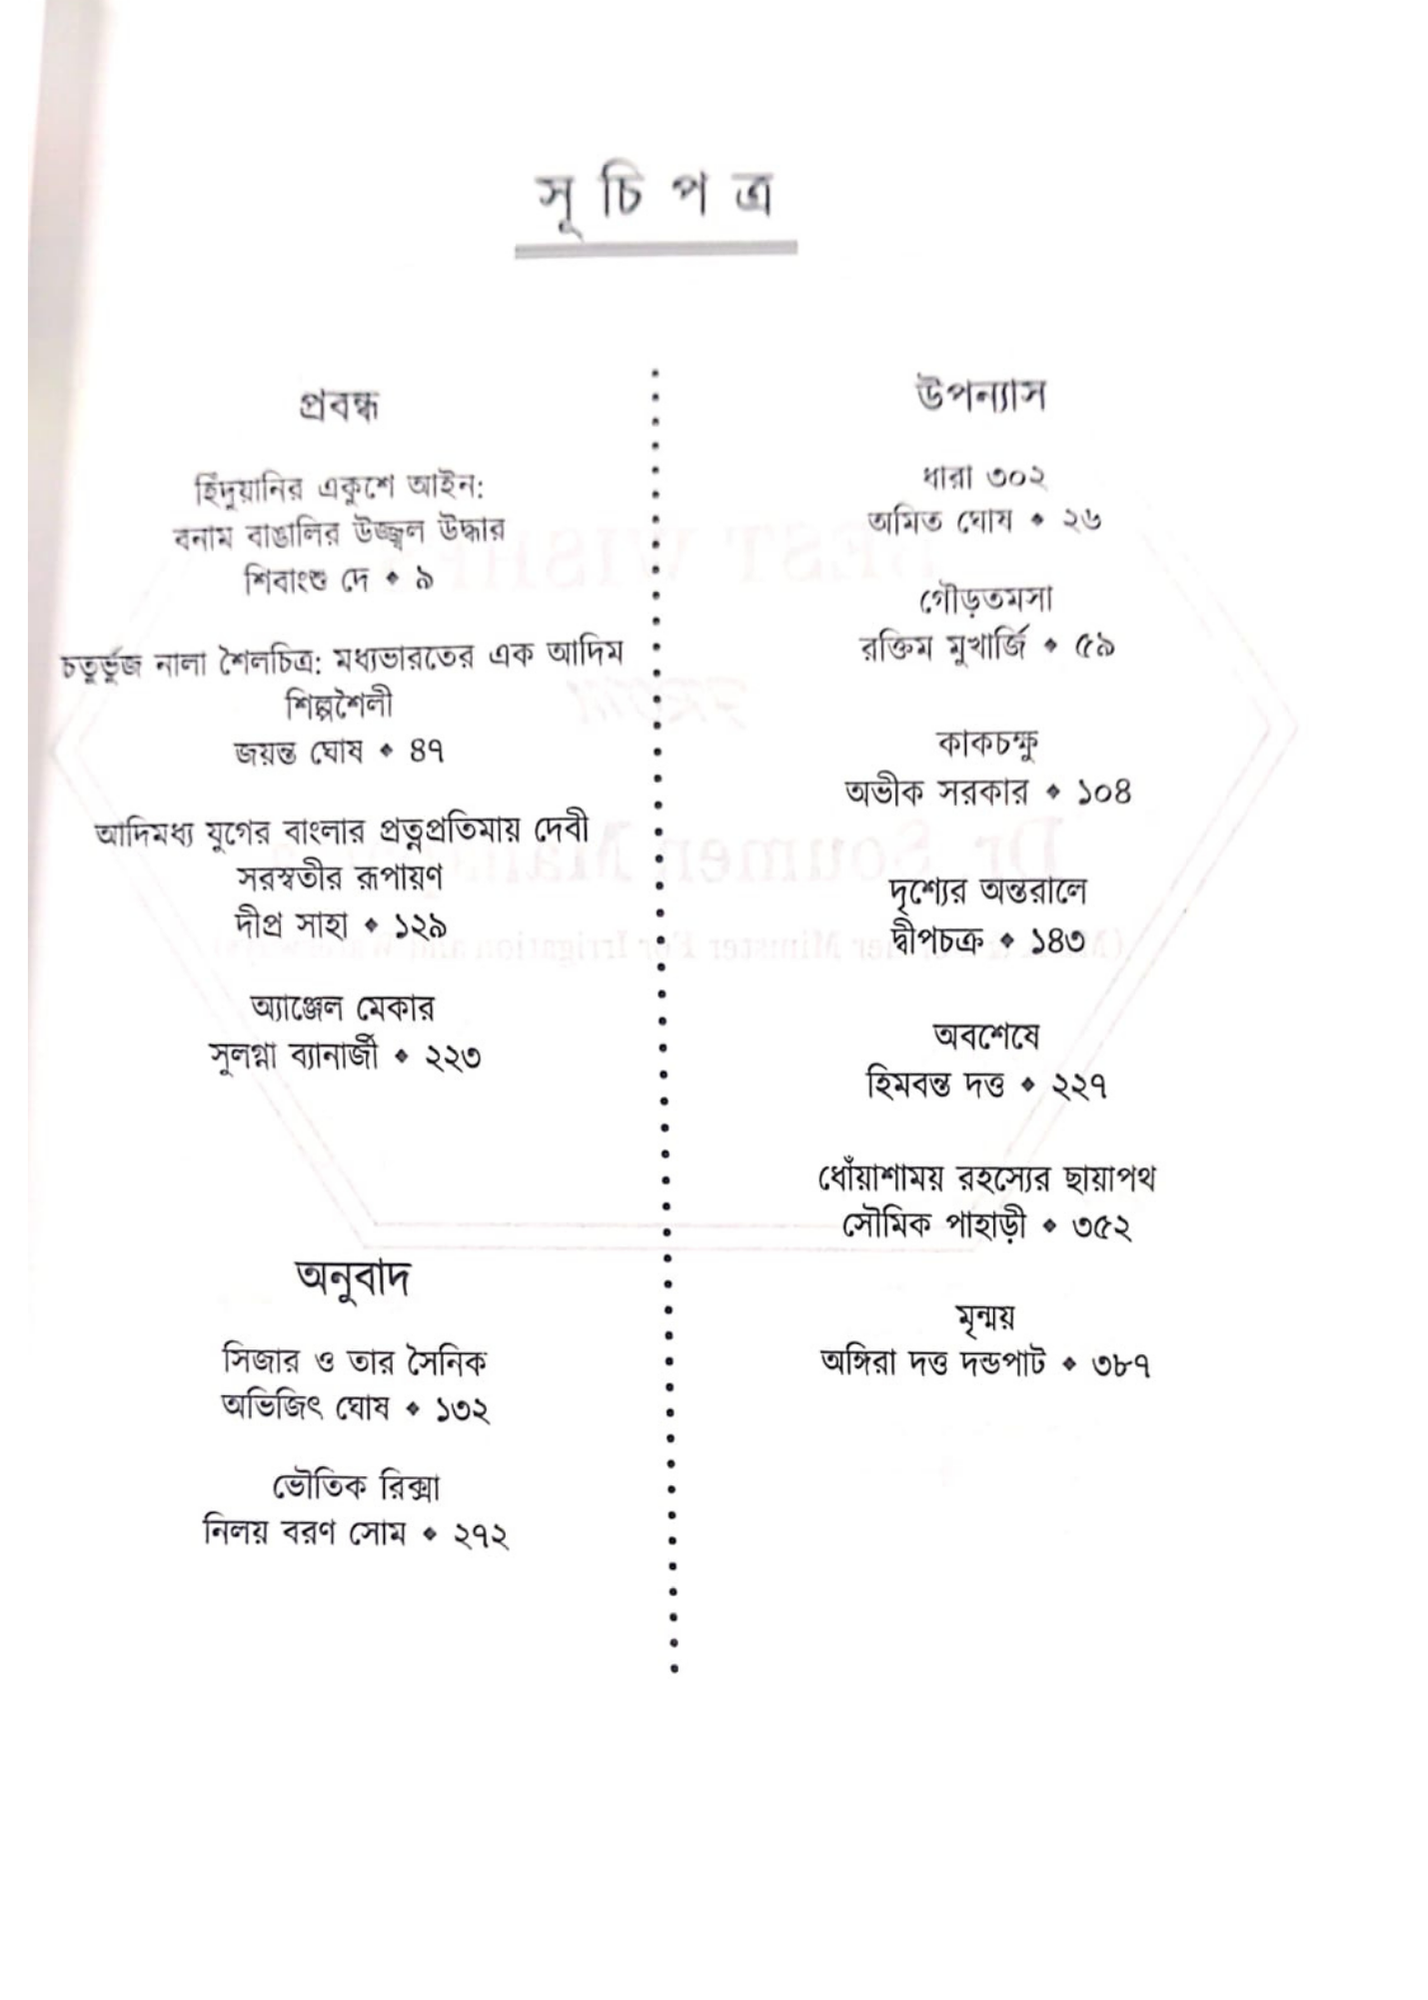 সূচিপত্র
প্রবন্ধ
হিঁদুয়ানির একুশে আইন:
বনাম বাঙালির উজ্জ্বল উদ্ধার
শিবাংশু দে ◆ ৯
চতুর্ভুজ নালা শৈলচিত্র: মধ্যভারতের এক আদিম
শিল্পশৈলী
জয়ন্ত ঘোষ ◆ ৪৭
আদিমধ্য যুগের বাংলার প্রত্নপ্রতিমায় দেবী
সরস্বতীর রূপায়ণ
দীপ্র সাহা ◆ ১২৯
অ্যাঞ্জেল মেকার
সুলগ্না ব্যানার্জী ◆ ২২৩
অনুবাদ
সিজার ও তার সৈনিক
অভিজিৎ ঘোষ ◆ ১৩২
ভৌতিক রিক্সা
নিলয় বরণ সোম ◆ ২৭২
উপন্যাস
ধারা ৩০২
অমিত ঘোষ ◆ ২৬
গৌড়তমসা
রক্তিম মুখার্জি ◆ ৫৯
কাকচক্ষু
অভীক সরকার ◆ ১০৪
দৃশ্যের অন্তরালে
দ্বীপচক্র ◆ ১৪৩
অবশেষে
হিমবন্ত দত্ত ◆ ২২৭
ধোঁয়াশাময় রহস্যের ছায়াপথ
সৌমিক পাহাড়ী ◆ ৩৫২
মৃন্ময়
অঙ্গিরা দত্ত দন্ডপাট ◆ ৩৮৭